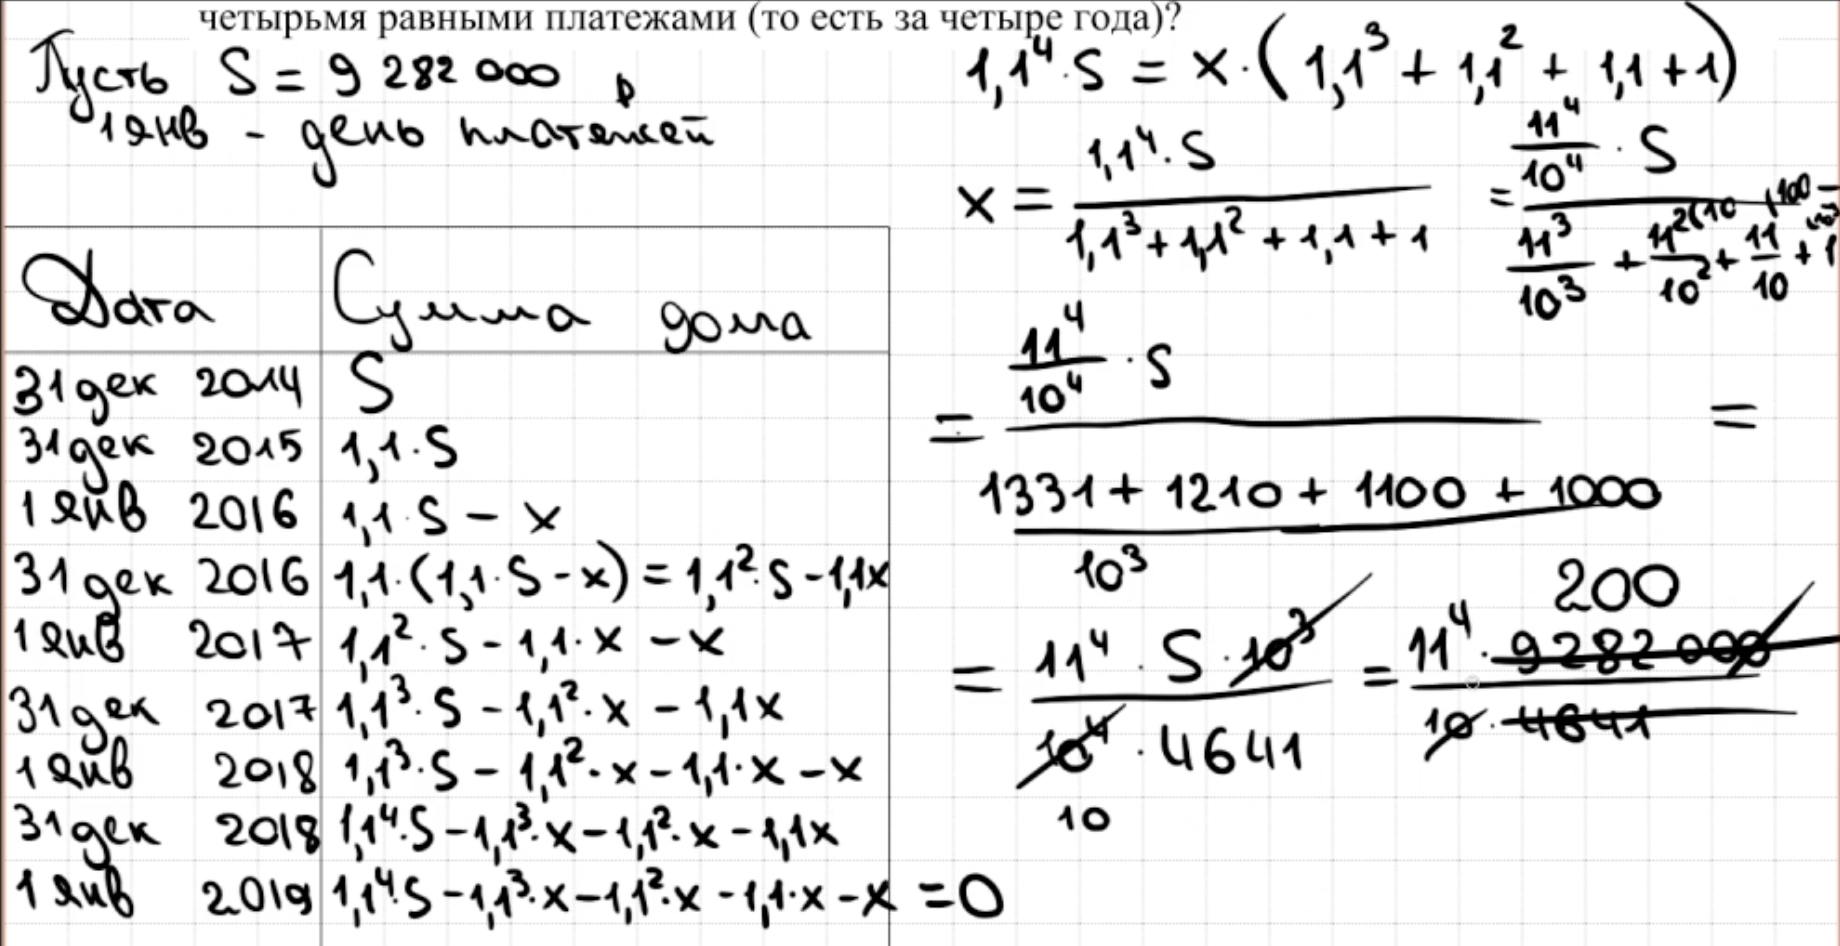 четырьмя равными платежами (то есть за четыре года)?
Пусть S = 9 282 000 ₽
1 янв - день платежей
Дата Сумма долга
31 дек 2014 S
31 дек 2015 1,1·S
1 янв 2016 1,1·S - x
31 дек 2016 1,1·(1,1·S - x) = 1,1²·S - 1,1x
1 янв 2017 1,1²·S - 1,1·x - x
31 дек 2017 1,1³·S - 1,1²·x - 1,1x
1 янв 2018 1,1³·S - 1,1²·x - 1,1·x - x
31 дек 2018 1,1⁴·S - 1,1³·x - 1,1²·x - 1,1x
1 янв 2019 1,1⁴S - 1,1³·x - 1,1²·x - 1,1·x - x = 0
1,1⁴·S = x·(1,1³ + 1,1² + 1,1 + 1)
1,1⁴·S 11⁴/10⁴ · S
x = =
1,1³ + 1,1² + 1,1 + 1 11³/10³ + 11²(10/10² + 11(100/10 + 1
11⁴/10⁴ · S
= =
1331 + 1210 + 1100 + 1000
10³
200
= 11⁴ · S · 10³ = 11⁴ · 9282 000
10⁴ · 4641 10 · 4641
10